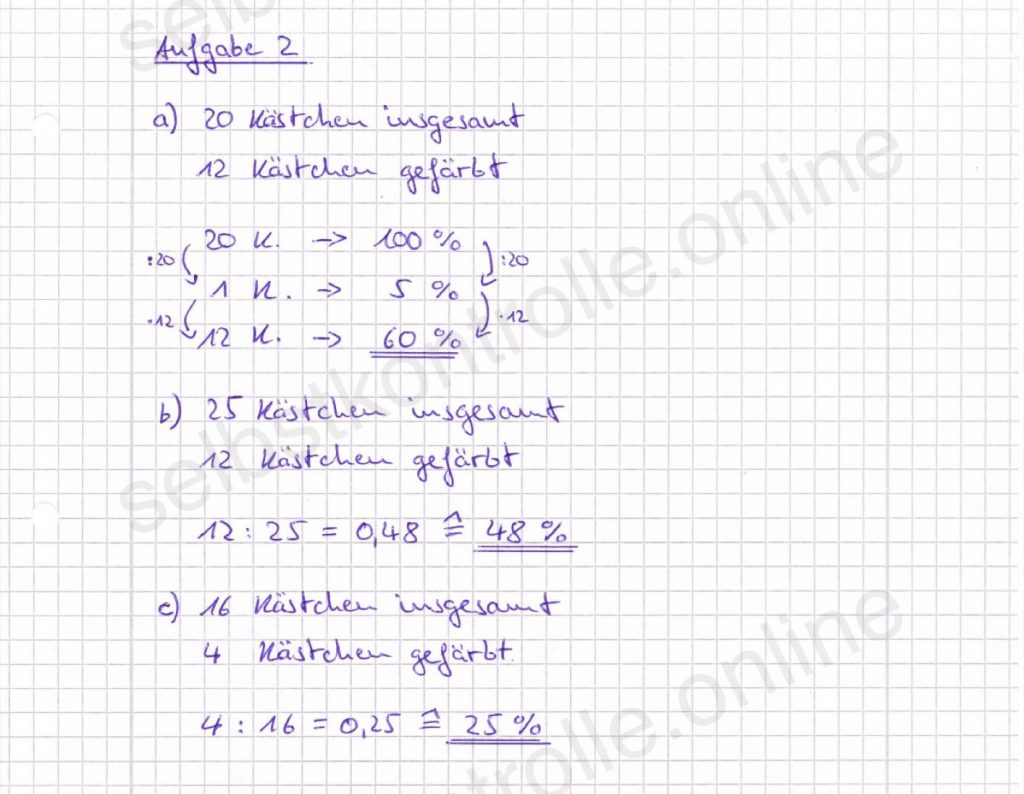 Aufgabe 2
a) 20 Kästchen insgesamt
12 Kästchen gefärbt
20 K. -> 100 %
:20 :20
1 K. -> 5 %
·12 ·12
12 K. -> 60 %
b) 25 Kästchen insgesamt
12 Kästchen gefärbt
12 : 25 = 0,48 ≙ 48 %
c) 16 Kästchen insgesamt
4 Kästchen gefärbt
4 : 16 = 0,25 ≙ 25 %
selbstkontrolle.online